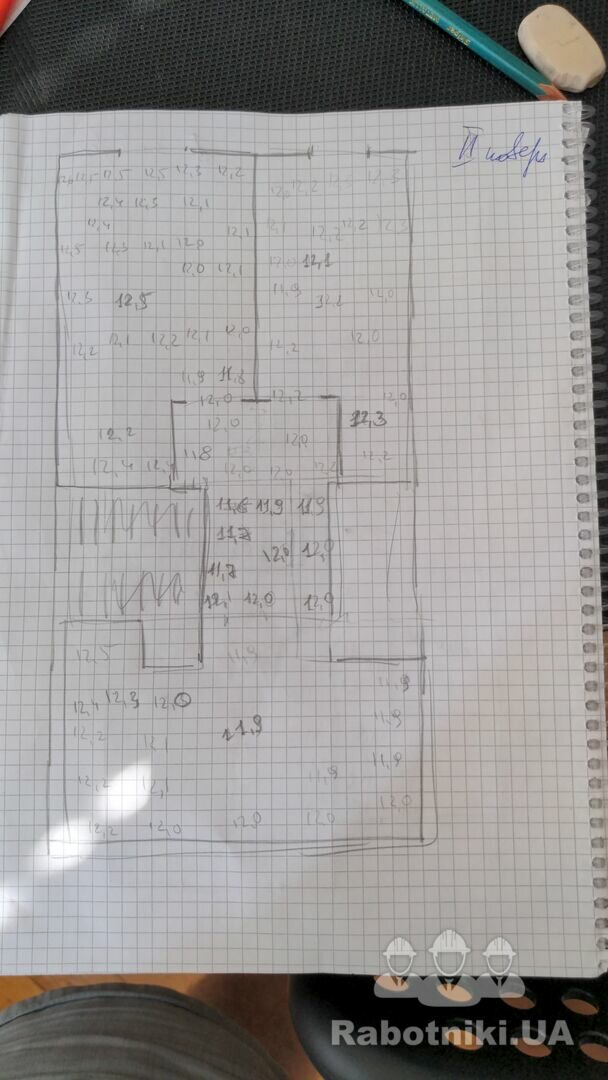 II поверх
12,5 12,5 12,3 12,2
12,2 12,3
12,4 12,3 12,1
12,4
12,1 12,1 12,2 12,2 12,3
12,5 12,3 12,1 12,0
12,0 12,1 12,0 12,1
12,3 12,5 11,9 12,0
12,2 12,1 12,2 12,1 12,0 12,2 12,0
11,9 11,8
12,0 12,2 12,0
12,2 12,0 12,0 12,3
12,4 11,8 12,0 12,0 12,2 12,2
11,6 11,9 11,9
11,7
12,0 12,0
11,7
12,1 12,0 12,0
12,5 11,9
11,9
12,4 12,3 12,0
12,2 12,1 11,9 11,9
12,2 12,1 11,9 11,9
12,0
12,2 12,0 12,0 12,0
Rabotniki.UA